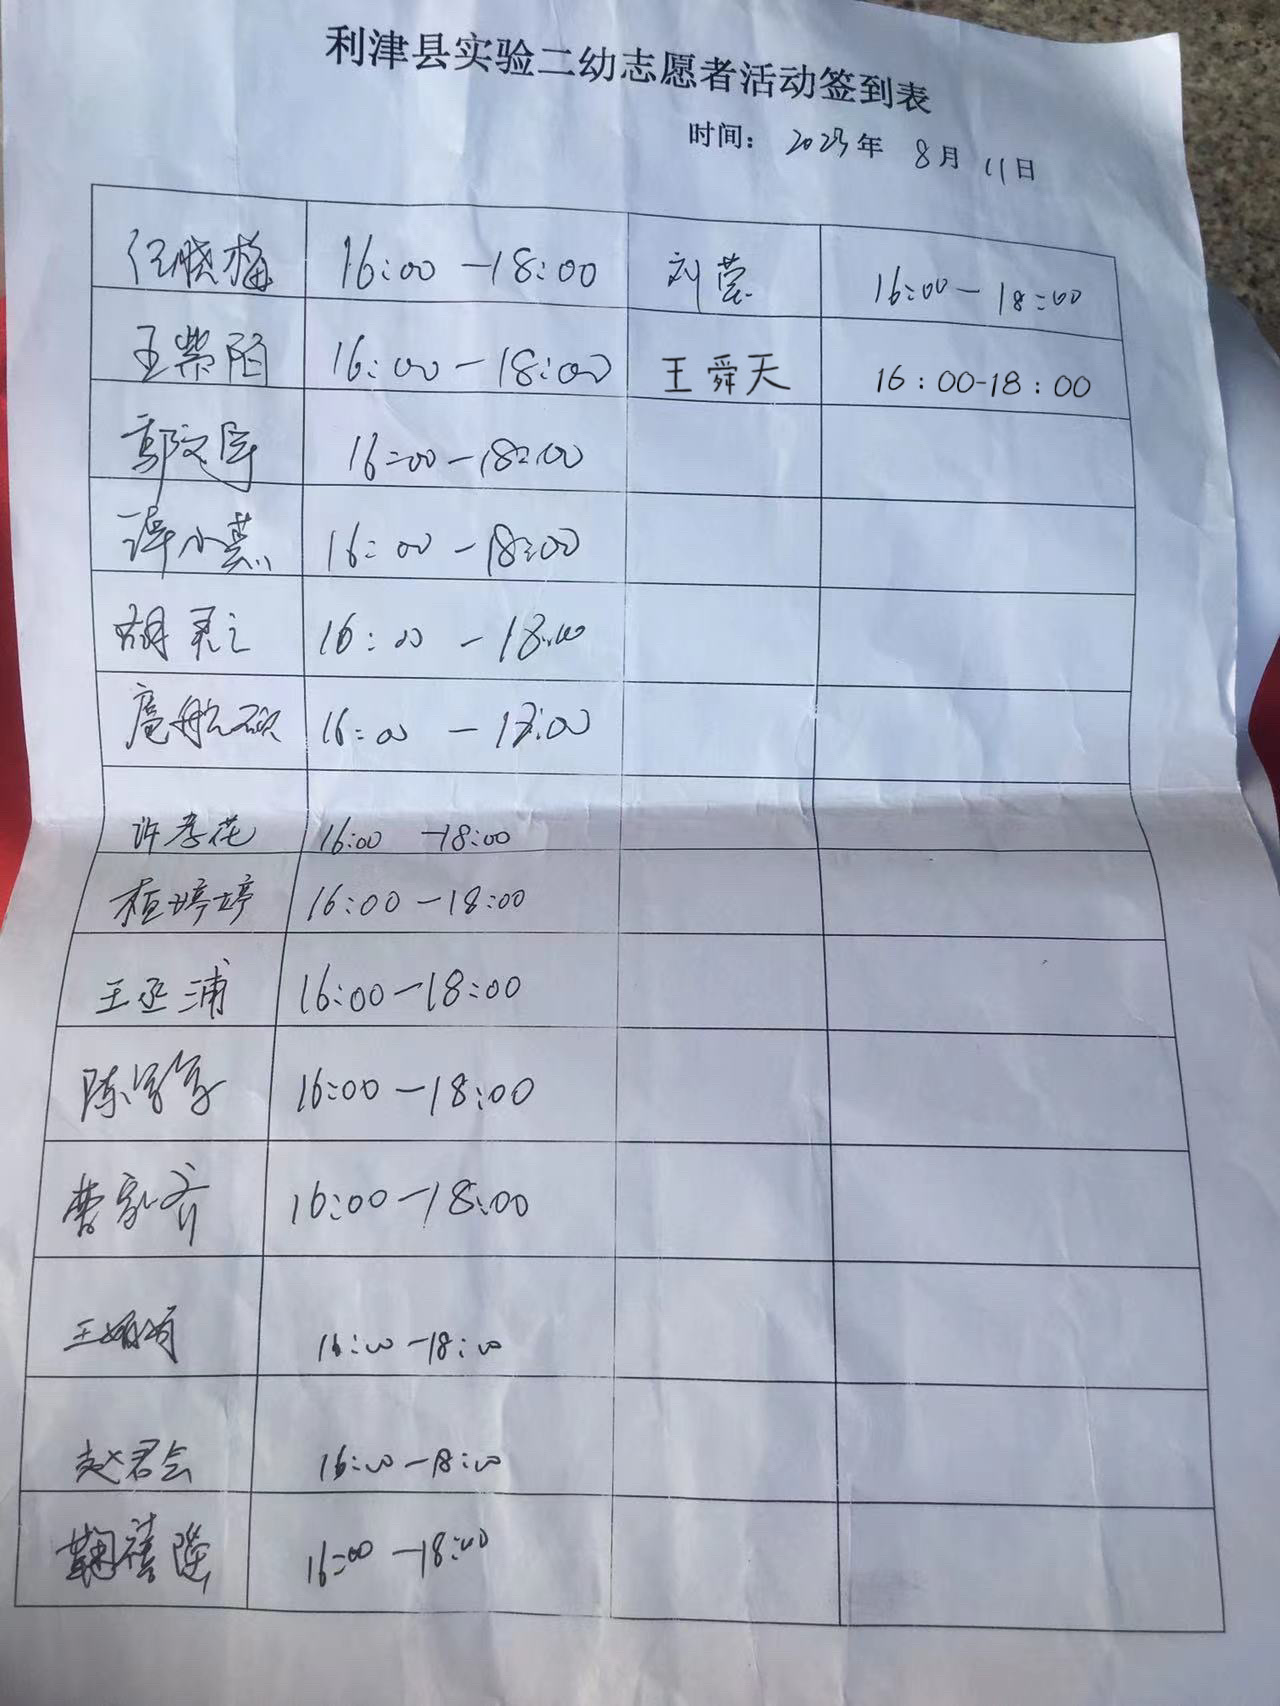 利津县实验二幼志愿者活动签到表
时间： 2023年 8月 11日
任晓梅 16:00-18:00 刘莹 16:00-18:00
王紫陌 16:00-18:00 王舜天 16:00-18:00
16:00-18:00
谭小燕 16:00-18:00
胡灵之 16:00-18:00
扈航硕 16:00-18:00
许孝花 16:00-18:00
桓婷婷 16:00-18:00
王丞浦 16:00-18:00
16:00-18:00
曹家齐 16:00-18:00
16:00-18:00
赵君会 16:00-18:00
鞠禧隆 16:00-18:00